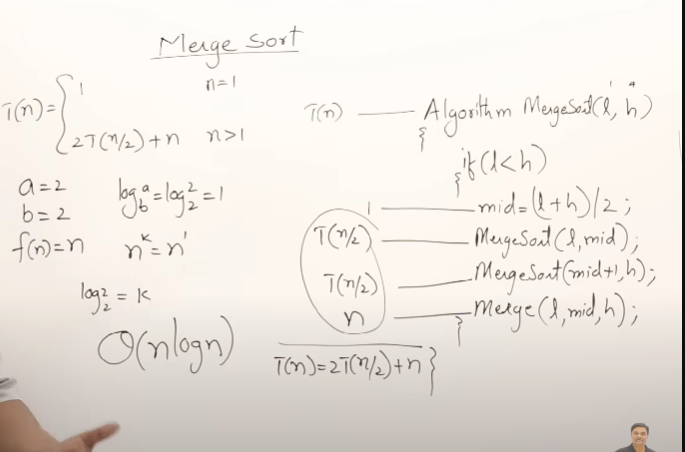 Merge Sort
T(n)= { 1 n=1
2T(n/2)+n n>1
a=2
b=2
f(n)=n
log_b^a = log_2^2 = 1
n^k = n^1
log_2^2 = k
O(nlogn)
T(n) — Algorithm MergeSort(l, h)
1 4
{
if(l<h)
{
1 — mid=(l+h)/2;
T(n/2) — MergeSort(l,mid);
T(n/2) — MergeSort(mid+1,h);
n — Merge(l,mid,h);
}
T(n)=2T(n/2)+n }